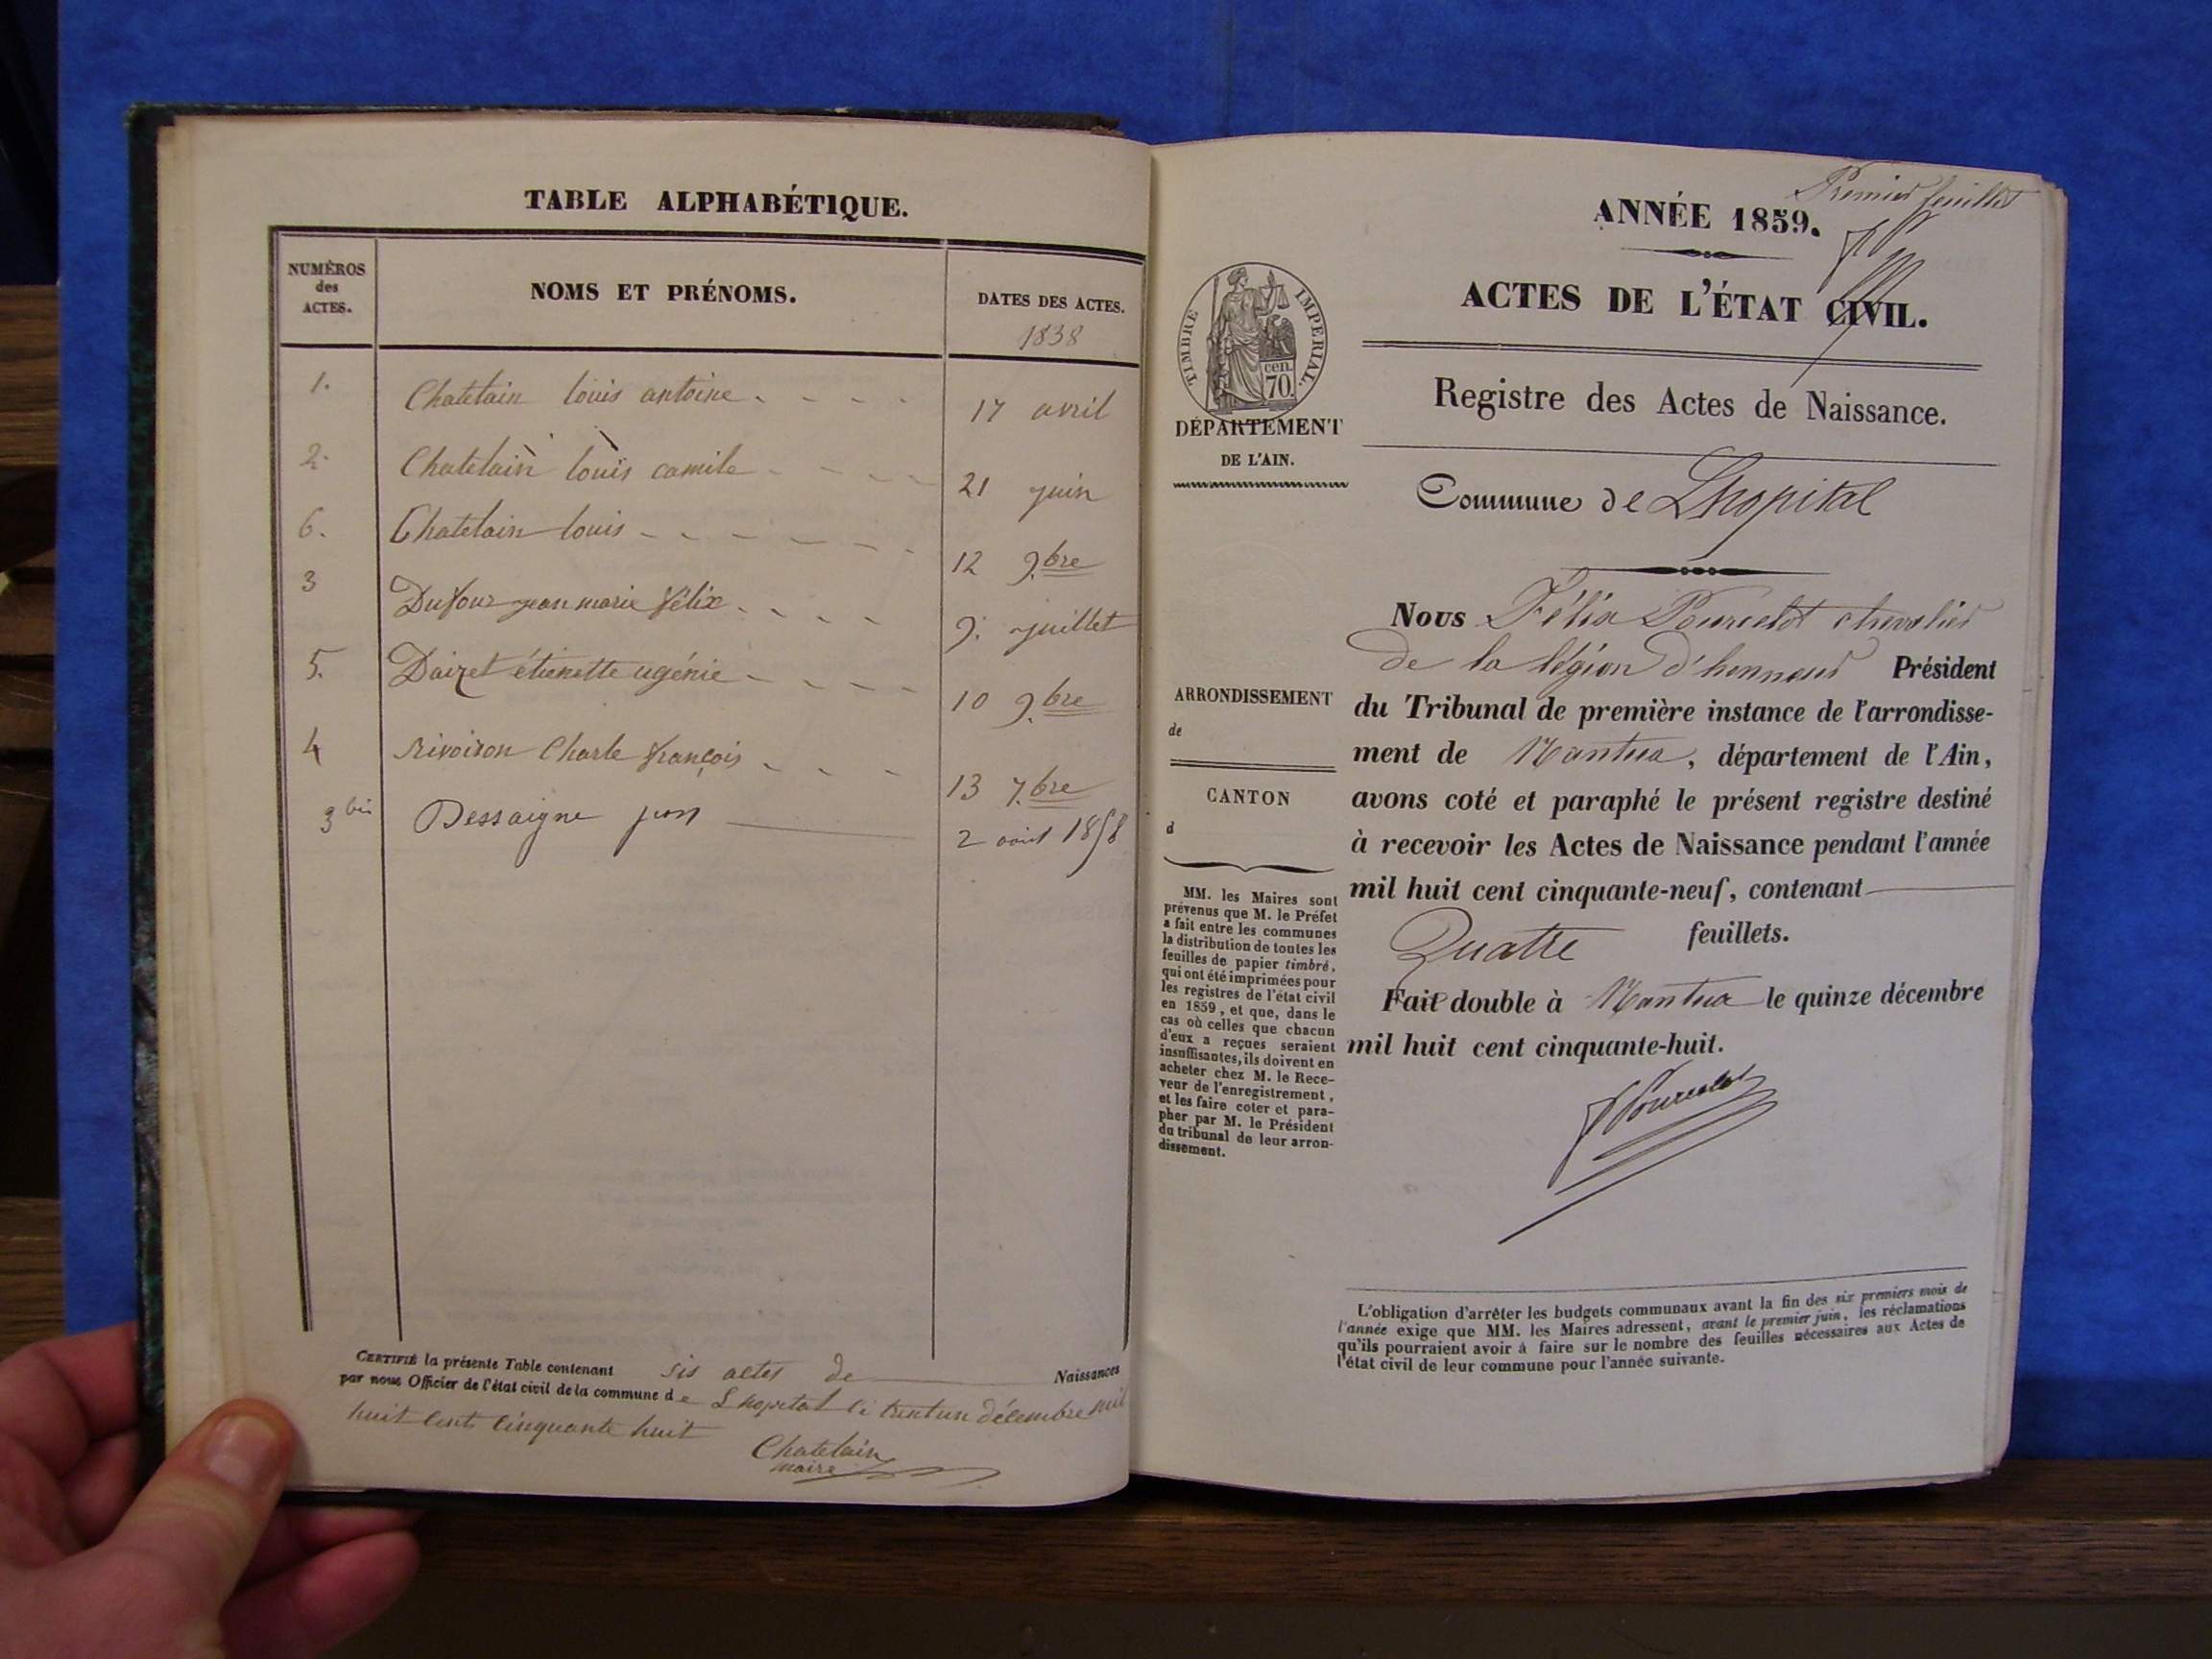 TABLE ALPHABÉTIQUE.
NUMÉROS des ACTES.
NOMS ET PRÉNOMS.
DATES DES ACTES.
1838
1. Chatelain louis antoine 17 avril
2. Chatelain louis camile 21 juin
6. Chatelain louis 12 9.bre
3 Dufour jean marie félix 9. juillet
5. Daizet étienette ugénie 10 9.bre
4 Rivoiron Charle françois 13 7.bre
3 bis Dessaigne 2 août 1858
CERTIFIÉ la présente Table contenant sis actes de Naissances
par nous Officier de l'état civil de la commune de Lhopital le trentun décembre mil
huit cents cinquante huit
Chatelain
maire
Premier feuillet
ANNÉE 1859.
ACTES DE L'ÉTAT CIVIL.
Registre des Actes de Naissance.
Commune de Lhopital
TIMBRE IMPERIAL.
70 cen.
DÉPARTEMENT
DE L'AIN.
ARRONDISSEMENT
de
CANTON
d
MM. les Maires sont
prévenus que M. le Préfet
a fait entre les communes
la distribution de toutes les
feuilles de papier timbré,
qui ont été imprimées pour
les registres de l'état civil
en 1859, et que, dans le
cas où celles que chacun
d'eux a reçues seraient
insuffisantes, ils doivent en
acheter chez M. le Rece-
veur de l'enregistrement,
et les faire coter et para-
pher par M. le Président
du tribunal de leur arron-
dissement.
Nous Félix Pourcelot chevalier
de la légion d'honneur Président
du Tribunal de première instance de l'arrondisse-
ment de Nantua, département de l'Ain,
avons coté et paraphé le présent registre destiné
à recevoir les Actes de Naissance pendant l'année
mil huit cent cinquante-neuf, contenant
Quatre feuillets.
Fait double à Nantua le quinze décembre
mil huit cent cinquante-huit.
F Pourcelot
L'obligation d'arrêter les budgets communaux avant la fin des six premiers mois de
l'année exige que MM. les Maires adressent, avant le premier juin, les réclamations
qu'ils pourraient avoir à faire sur le nombre des feuilles nécessaires aux Actes de
l'état civil de leur commune pour l'année suivante.